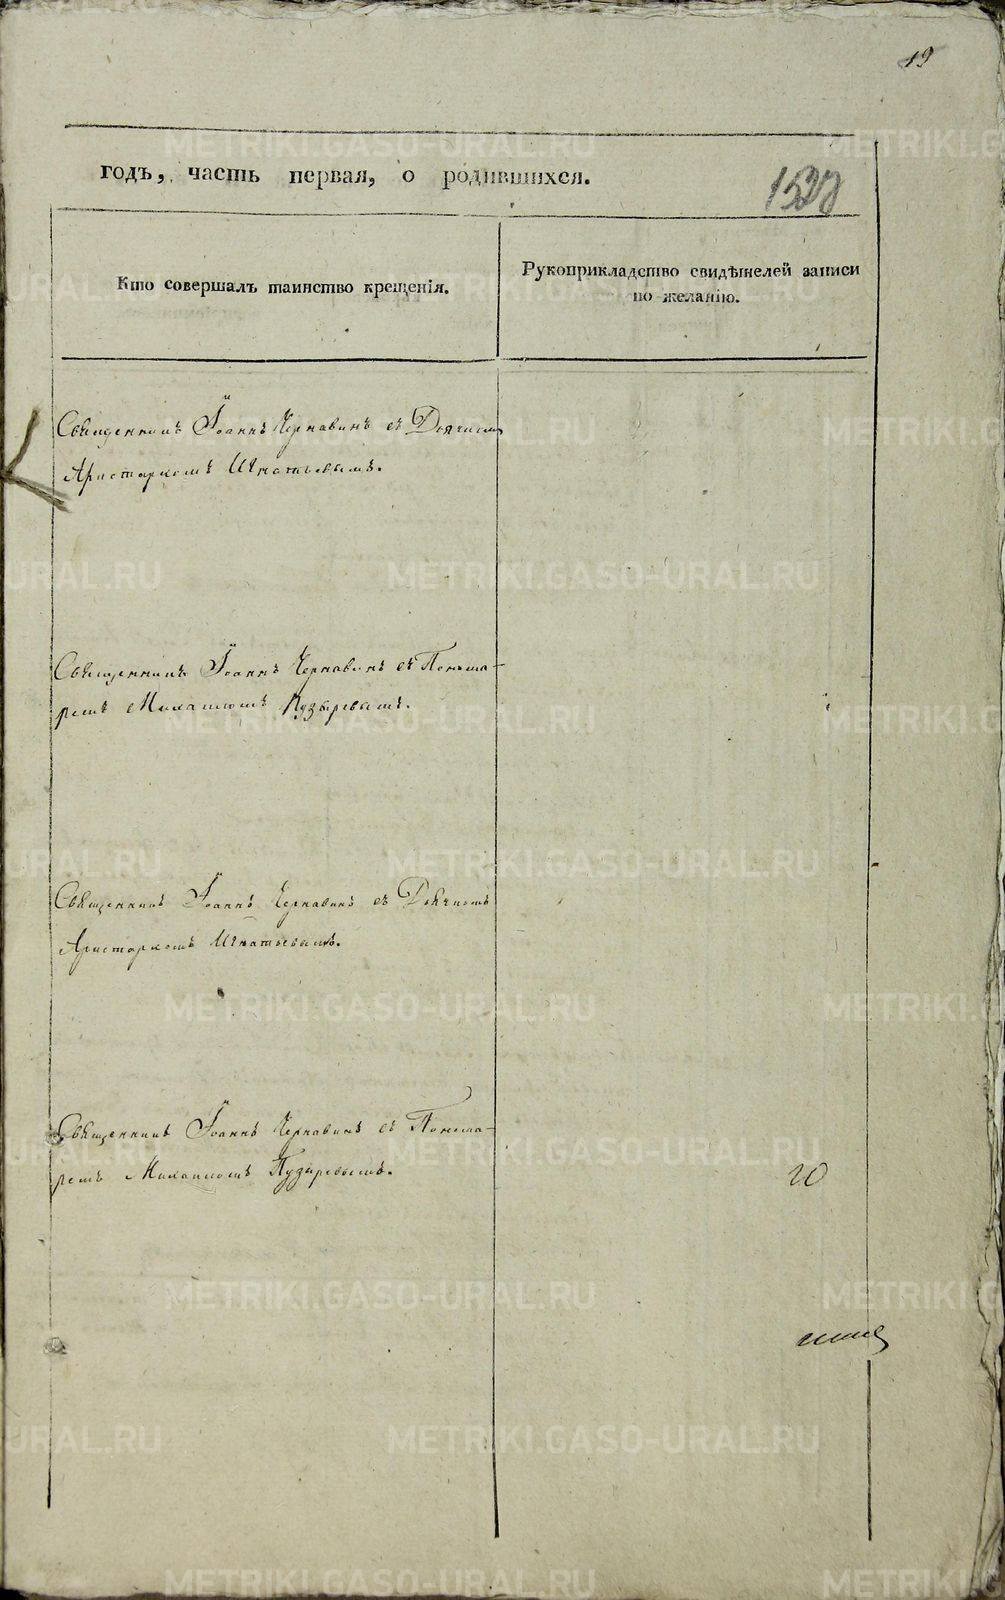 19
годъ, часть первая, о родившихся.
Кто совершалъ таинство крещенія.
Рукоприкладство свидѣтелей записи
по желанію.
Священникъ Іоаннъ Чернавинъ съ Дьячкомъ
Аристархомъ Игнатьевымъ.
Священникъ Іоаннъ Чернавинъ съ Понома-
ремъ Михаиломъ Пузыревымъ.
Священникъ Іоаннъ Чернавинъ съ Дьячкомъ
Аристархомъ Игнатьевымъ.
Священникъ Іоаннъ Чернавинъ съ Понома-
ремъ Михаиломъ Пузыревымъ.
METRIKI.GASO-URAL.RU